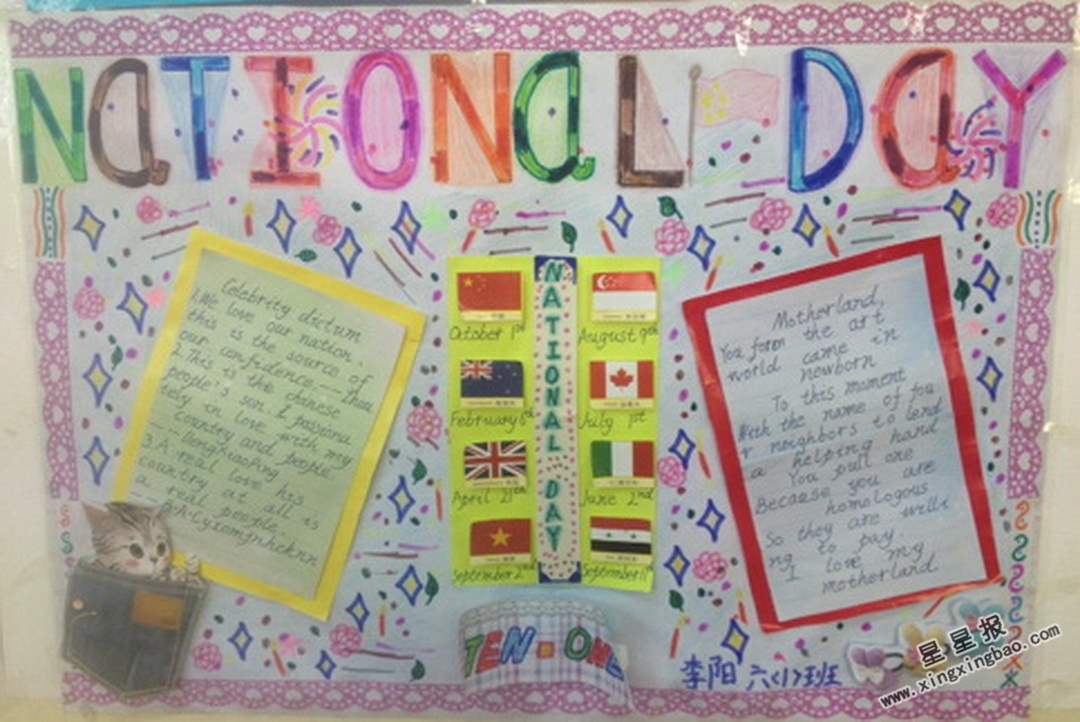 NATIONAL DAY
Celebrity dictum
1. We love our nation.
this is the source of
our confidence.——Zhou
2. This is the chinese
people's son. I passiona
tely in love with my
country and people.
——Dengxiaoping
3. A real love his
country at all is
a real people.
NATIONAL DAY
October 1st
August 9th
February 6th
July 1st
April 21th
June 2nd
September 2nd
September 11th
Motherland,
You form the art
world came in
newborn
To this moment
With the name of you
r neighbors to lend
a helping hand
You pull one
Because you are
homologous
So they are willi
ng to pay.
I love my
motherland.
TEN-ONE
李阳 六(1)班
星星报
www.xingxingbao.com